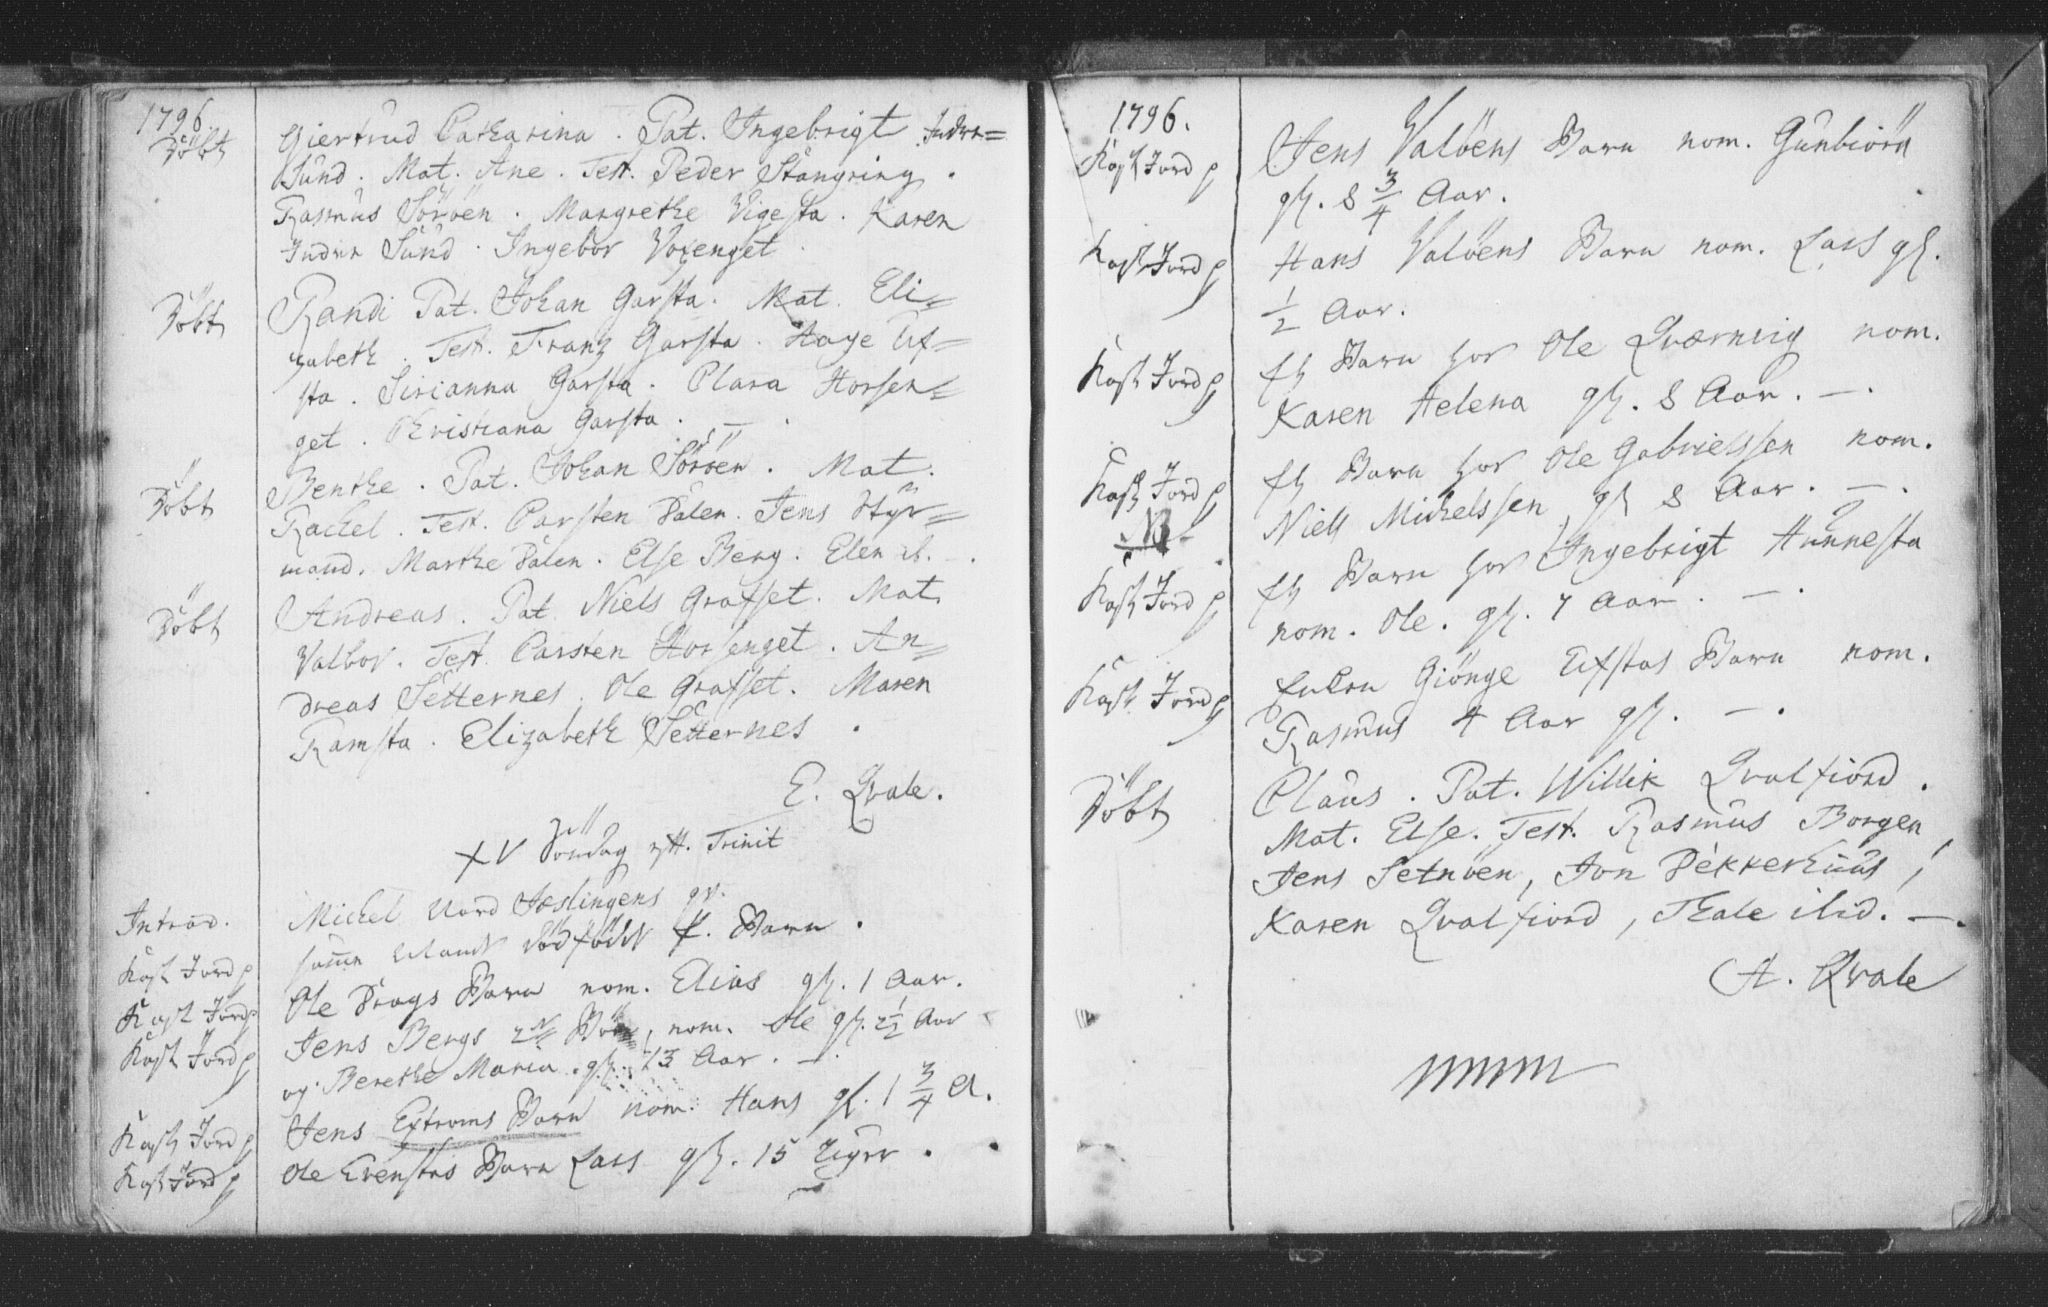 1796.
Döbt Giertrud Catharina. Pat. Ingebrigt Indre=
Sund. Mat. Ane. Test. Peder Stangring.
Rasmus Söröen. Margrethe Vigesta. Karen
Indre Sund. Ingebor Voxenget.
Döbt Randi Pat. Johan Garsta. Mat. Eli=
zabeth. Test. Franz Garsta. Hage Uf=
sta. Sirianna Garsta. Clara Horsen=
get. Christiana Garsta. —.
Döbt Benthe. Pat. Johan Söröen. Mat.
Rachel. Test. Carsten Dalen. Jens Styr=
mand. Marthe Dalen. Else Berg. Elen ib. —.
Döbt Andreas. Pat. Niels Grafset. Mat.
Valbor. Test. Carsten Horsenget. An=
dreas Setternes. Ole Grafset. Maren
Ramsta. Elizabeth Setternes.
E. Qvale.
XV Söndag eft. Trinit
Introd. Michel Nord Jæslingens qv.
Kast Jord p samme Mands dödfödde Barn.
Kast Jord p Ole Drags Barn nom. Elias gl. 1 Aar.
Kast Jord p Jens Bergs 2de Börn, nom. Ole gl. 2 1/2 Aar
og Berethe Maria. gl. 13 Aar. —.
Kast Jord p Jens Extroms Barn nom. Hans gl. 1 3/4 A.
Kast Jord p Ole Evenstas Barn Lars gl. 15 Uger.
1796.
Kast Jord p Jens Valöens Barn nom. Gunbiörn
gl. 8 3/4 Aar.
Kast Jord p Hans Valöens Barn nom. Lars gl.
1/2 Aar.
Kast Jord p et Barn hos Ole Qværnvig nom.
Karen Helena gl. 8 Aar. —.
Kast Jord p et Barn hos Ole Gabrielssen nom.
NB Niels Michelssen gl 8 Aar. —.
Kast Jord p et Barn hos Ingebrigt Hunnesta
nom. Ole. gl. 7 Aar. —.
Kast Jord p Enken Giönge Ufstas Barn nom.
Rasmus 4 Aar gl. —.
Döbt Claus. Pat. Willik Qvalfiord.
Mat. Else. Test. Rasmus Borgen,
Jens Setnöen, Jon Dekkerhuus,
Karen Qvalfiord, Thale ibid. —.
A. Qvale